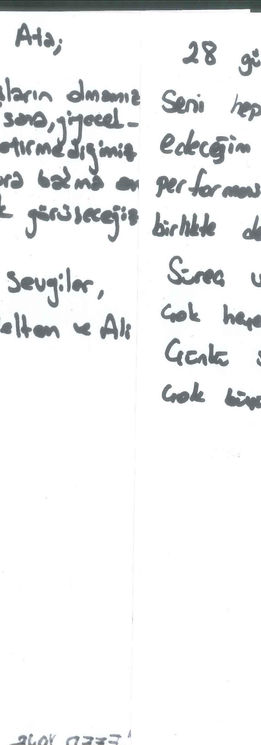 Ata;
ların olmamız
sana, yiyecek-
etirmediğimiz
ora bakma en
k görüşeceğiz
Sevgiler,
eltem ve Ali
28 gü
Seni hep
edeceğim
performans
birlikte de
Süreci
Çok heye
Çünkü s
Çok büyü